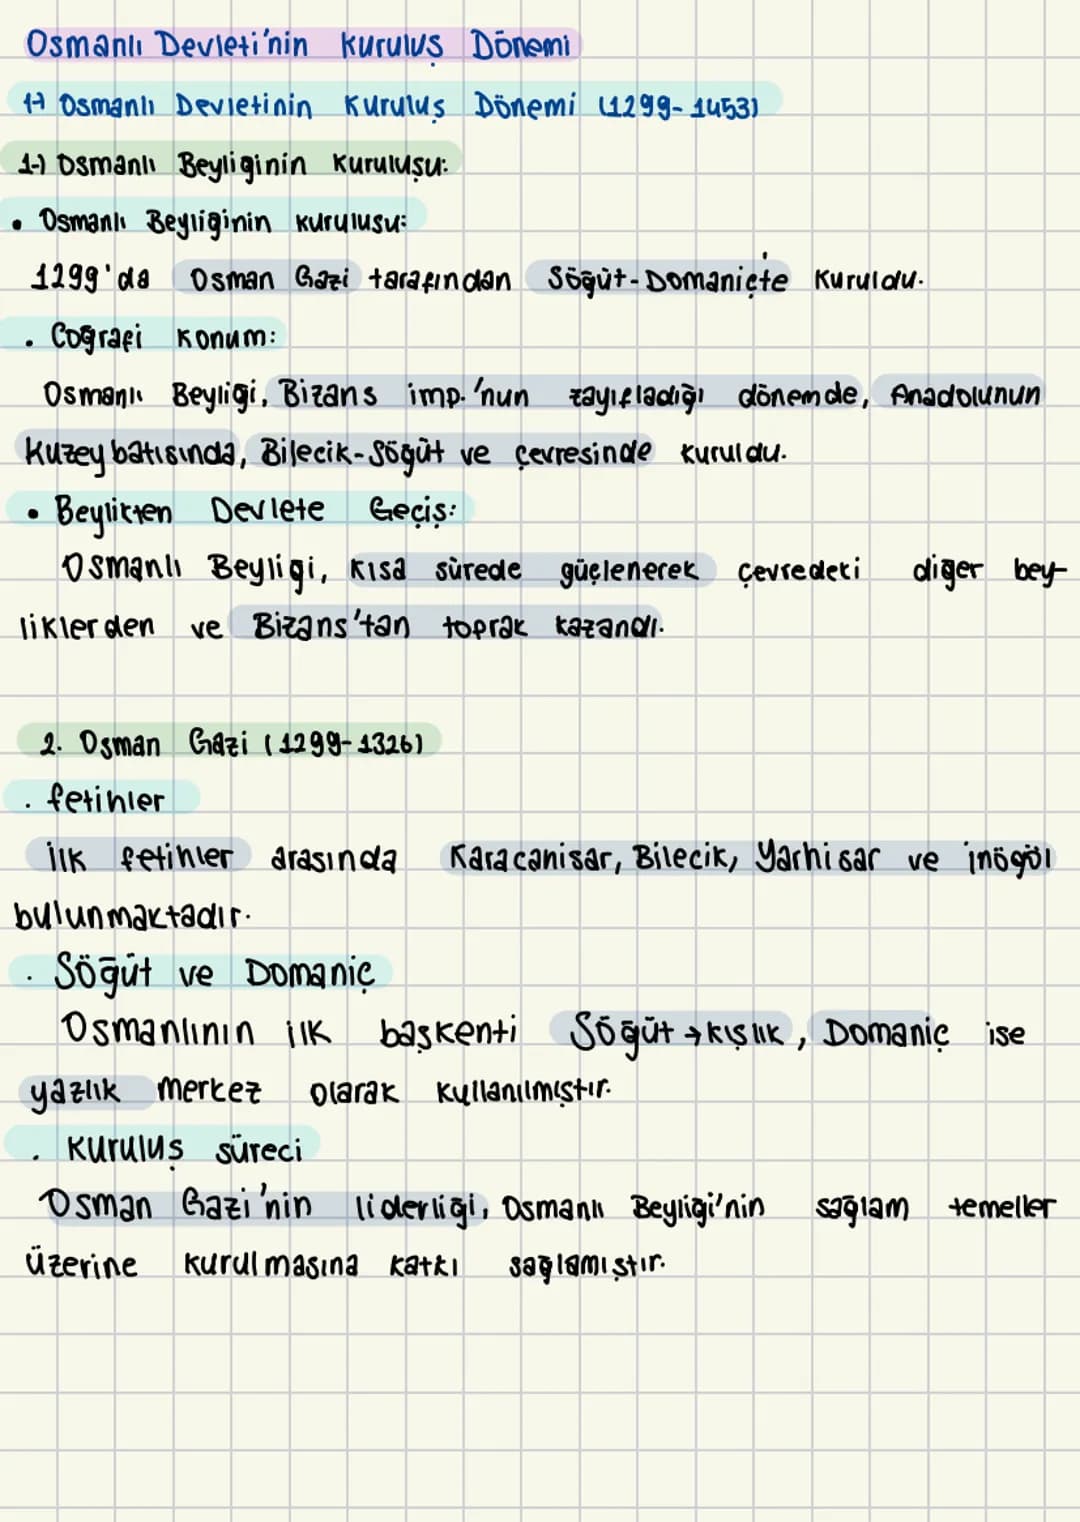 Osmanlı Devleti'nin Kuruluş Dönemi
1-) Osmanlı Devletinin Kuruluş Dönemi (1299-1453)
1-) Osmanlı Beyliğinin Kuruluşu:
• Osmanlı Beyliğinin Kuruluşu:
1299'da Osman Gazi tarafından Söğüt-Domaniçte Kuruldu.
• Coğrafi Konum:
Osmanlı Beyliği, Bizans imp.'nun zayıfladığı dönemde, Anadolunun
Kuzeybatısında, Bilecik-Söğüt ve çevresinde kuruldu.
• Beylikten Devlete Geçiş:
Osmanlı Beyligi, Kısa sürede güçlenerek çevredeki diğer bey-
liklerden ve Bizans'tan toprak kazandı.
2. Osman Gazi (1299-1326)
• fetihler
İlk fetihler arasında Karacahisar, Bilecik, Yarhisar ve inögöl
bulunmaktadır.
• Söğüt ve Domaniç
Osmanlının ilk başkenti Söğüt → kışlık, Domaniç ise
yazlık merkez olarak kullanılmıştır.
• Kuruluş süreci
Osman Gazi'nin liderliği, Osmanlı Beyliği'nin sağlam temeller
üzerine kurulmasına katkı sağlamıştır.